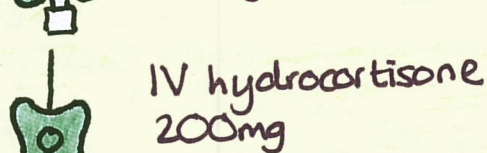 IV hydrocortisone
200mg